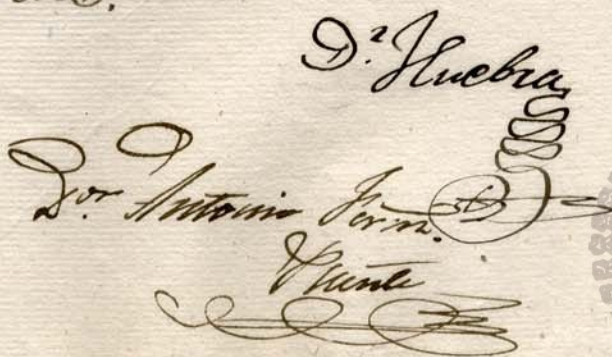 D.r Huebra
Dor. Antonio Fern.
Puente